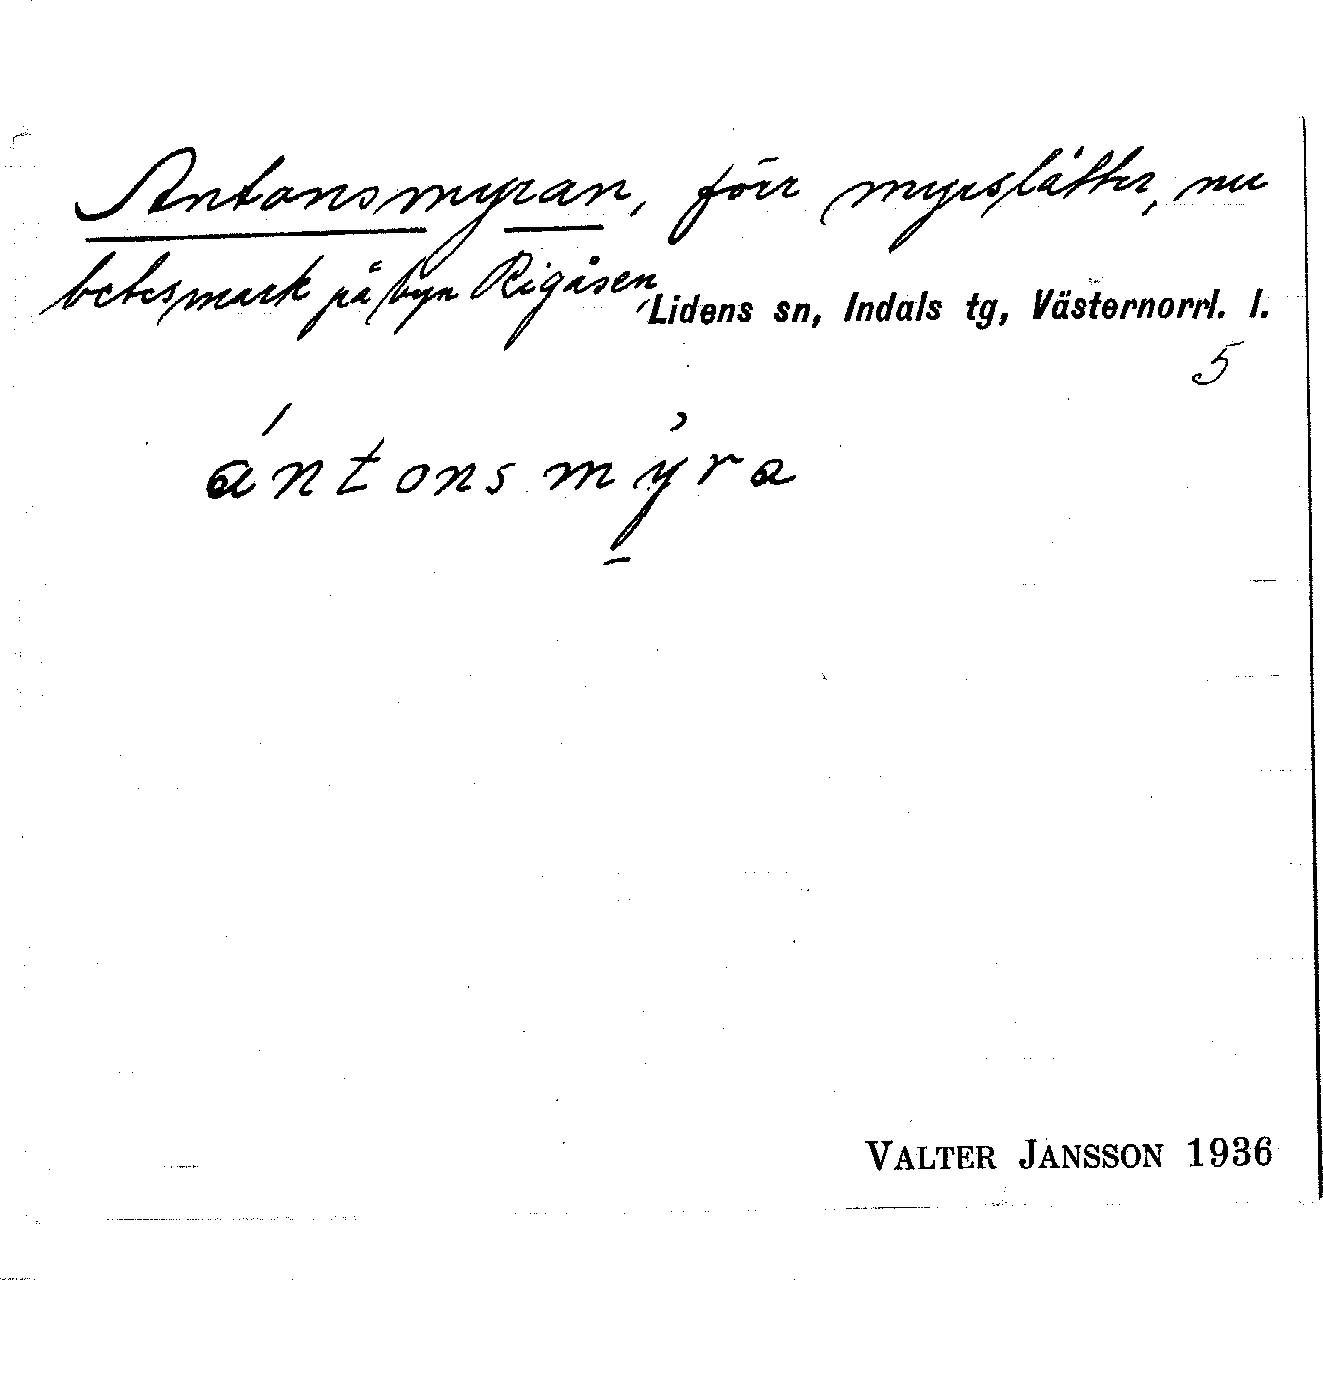 Antonsmyran, förr myrslåtter, nu
betesmark på byn Rigåsen,
Lidens sn, Indals tg, Västernorrl. l.
5
ántonsmỷ̠ra
VALTER JANSSON 1936